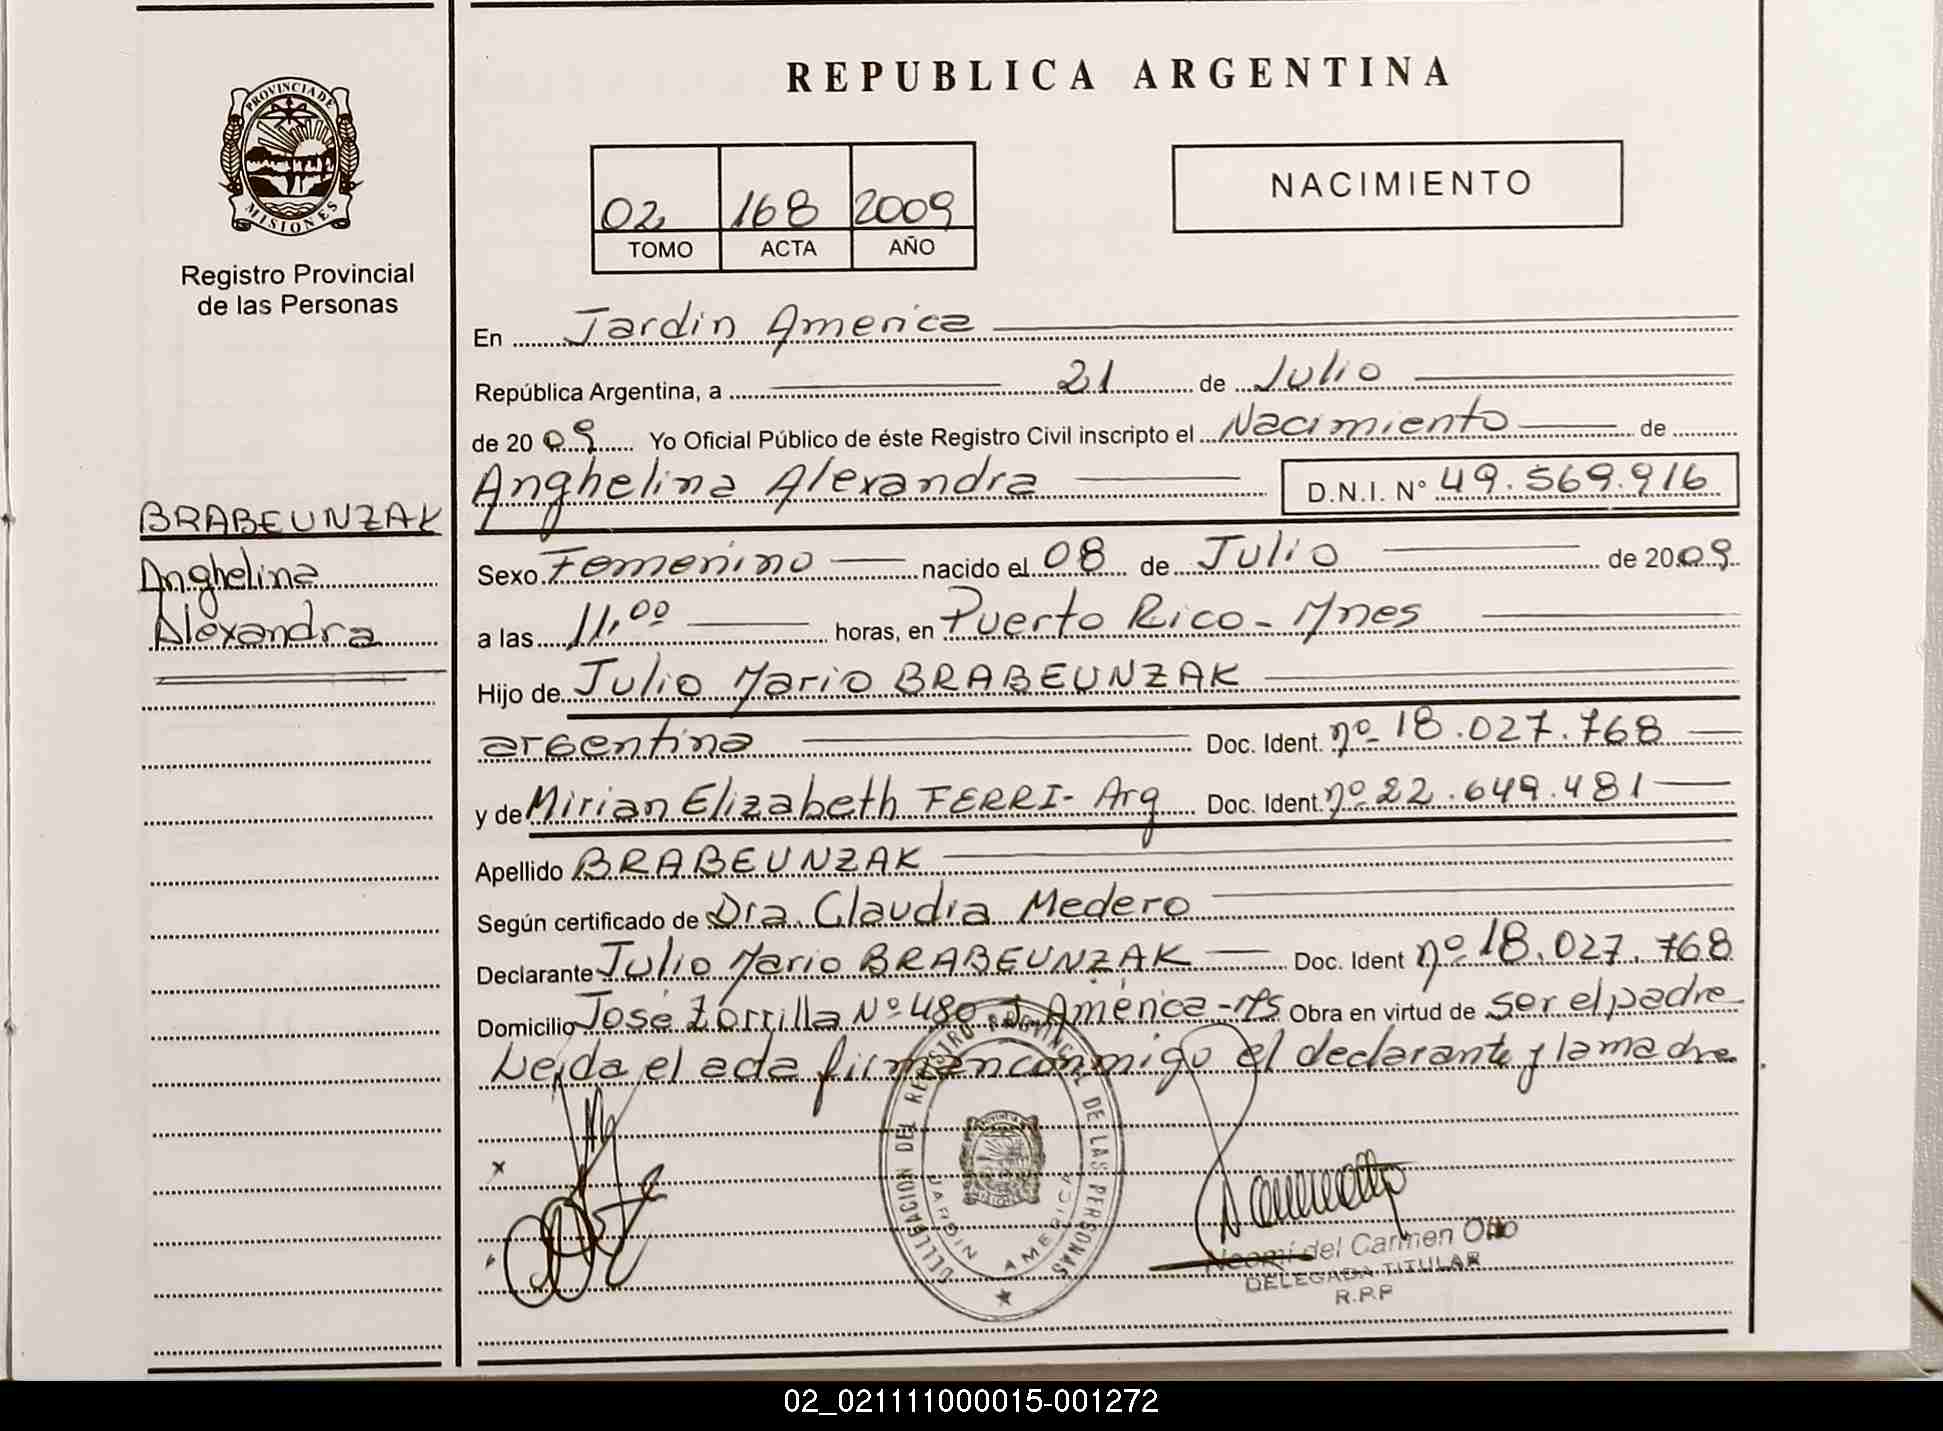 PROVINCIA DE
MISIONES
Registro Provincial
de las Personas
BRABEUNZAK
Anghelina
Alexandra
REPUBLICA ARGENTINA
02 168 2009
TOMO ACTA AÑO
NACIMIENTO
En Jardin America
República Argentina, a 21 de Julio
de 2009 Yo Oficial Público de éste Registro Civil inscripto el Nacimiento de
Anghelina Alexandra D.N.I. N° 49.569.916
Sexo Femenino nacido el 08 de Julio de 2009
a las 11,00 horas, en Puerto Rico - Mnes
Hijo de Julio Mario BRABEUNZAK
argentina Doc. Ident. nº 18.027.768
y de Mirian Elizabeth FERRI - Arg Doc. Ident. nº 22.649.481
Apellido BRABEUNZAK
Según certificado de Dra. Claudia Medero
Declarante Julio Mario BRABEUNZAK Doc. Ident nº 18.027.768
Domicilio José Zorrilla Nº 480 J. América - Ms Obra en virtud de ser el padre
Leida el acta firman conmigo el declarante y la madre
DELEGACION DEL REGISTRO PROVINCIAL DE LAS PERSONAS
JARDIN AMERICA
Noemi del Carmen Otto
DELEGADA TITULAR
R.P.P
02_021111000015-001272